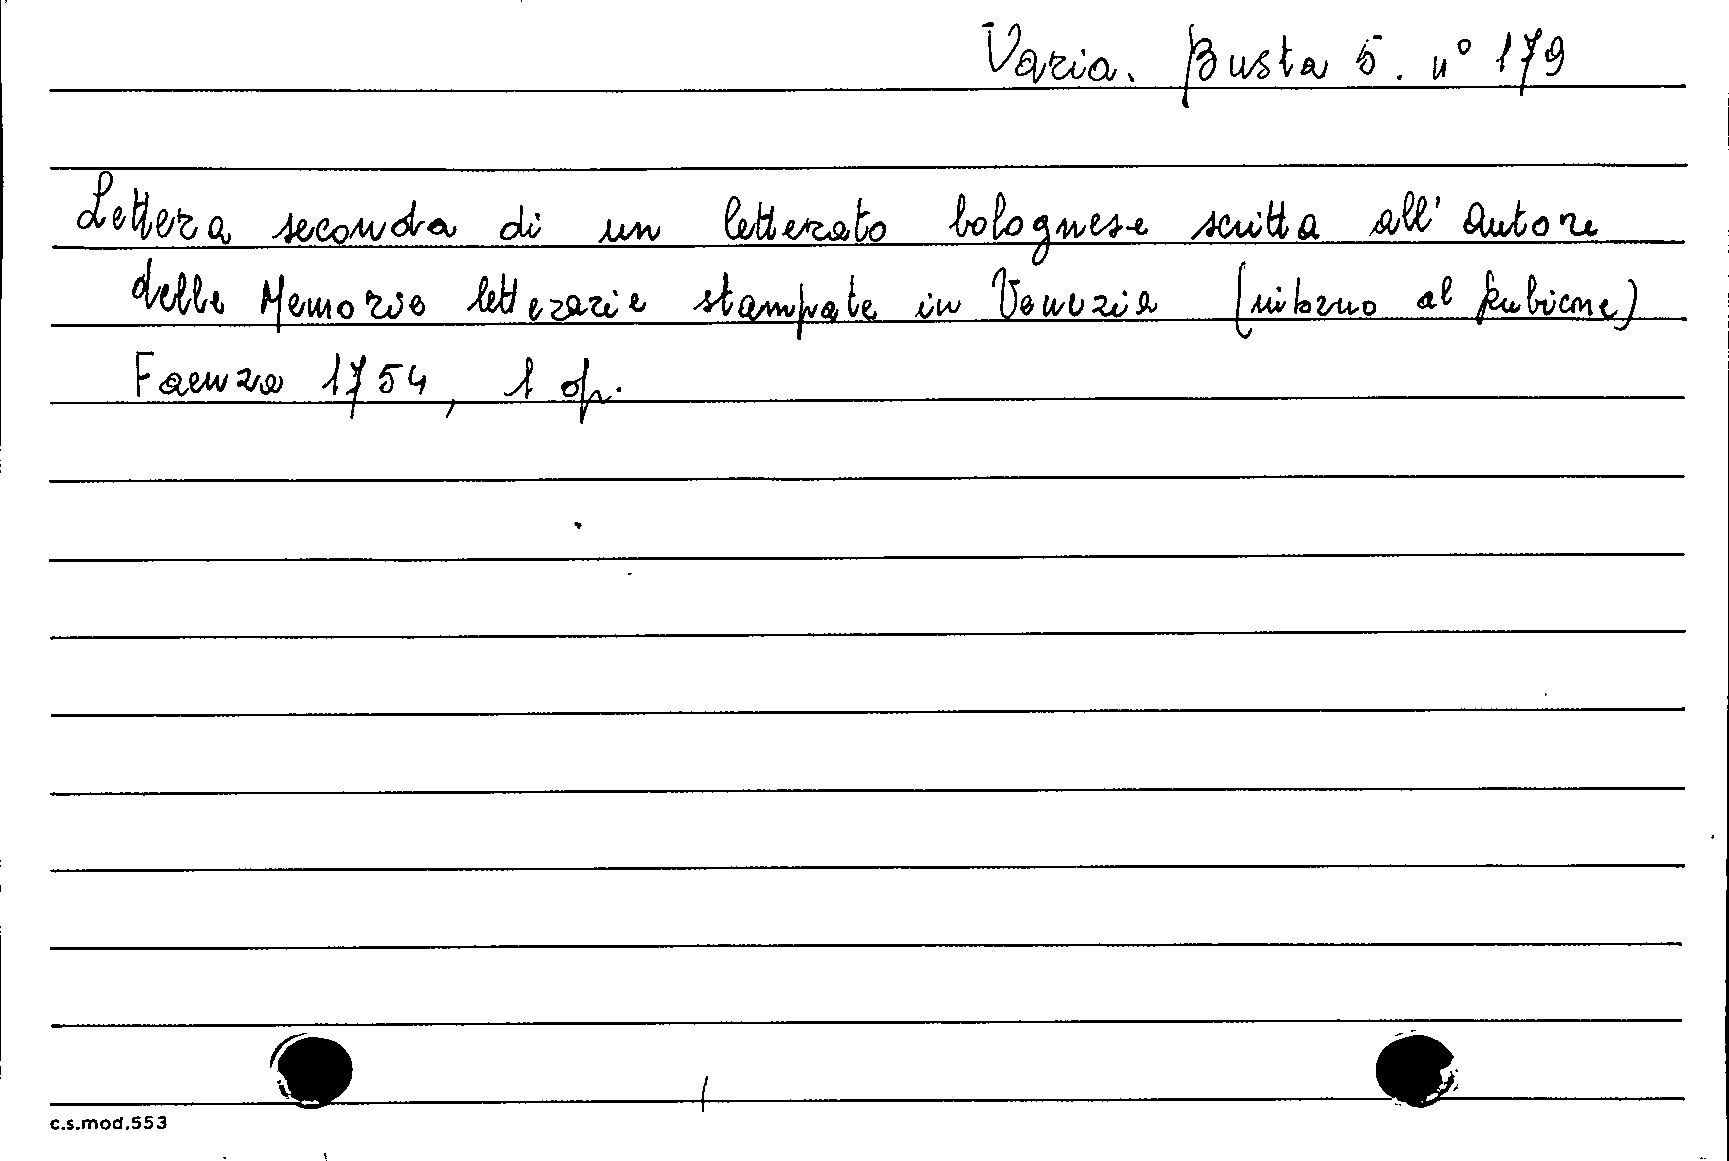 Varia. Busta 5. n° 179
Lettera seconda di un letterato bolognese scritta all' autore
delle Memorie letterarie stampate in Venezia (intorno al Rubicone)
Faenza 1754, 1 op.
c.s.mod.553